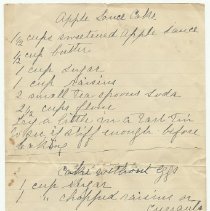 Apple Sauce Cake
1½ cups sweetened Apple Sauce
½ cup butter
1 cup sugar
1 cup raisins
2 small tea spoons soda
2 ½ cups flour
a little in a
if stiff enough before
baking
Cake without eggs
1 cup sugar
1 " chopped raisins or
currants